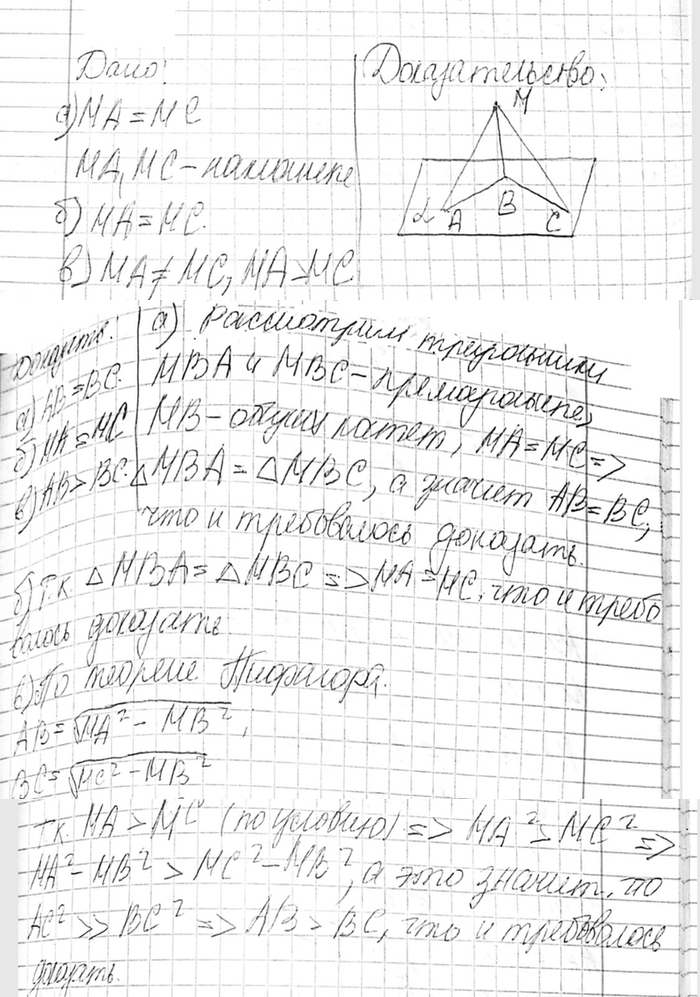 Дано:
а) MA = MC
MA, MC – наклонные
б) MA = MC.
в) MA ≠ MC, MA > MC
Доказательство:
M
α A B C
Доказать:
а) AB = BC.
б) MA = MC
в) AB > BC.
а) Рассмотрим треугольники
MBA и MBC – прямоугольные,
MB – общий катет, MA = MC =>
△MBA = △MBC, а значит AB = BC,
что и требовалось доказать.
б) Т.к. △MBA = △MBC => MA = MC, что и требо
валось доказать.
в) По теореме Пифагора.
AB = √MA² – MB²;
BC = √MC² – MB²
т.к. MA > MC (по условию) => MA² > MC² =>
MA² – MB² > MC² – MB², а это значит, то
AC² >> BC² => AB > BC, что и требовалось
доказать.